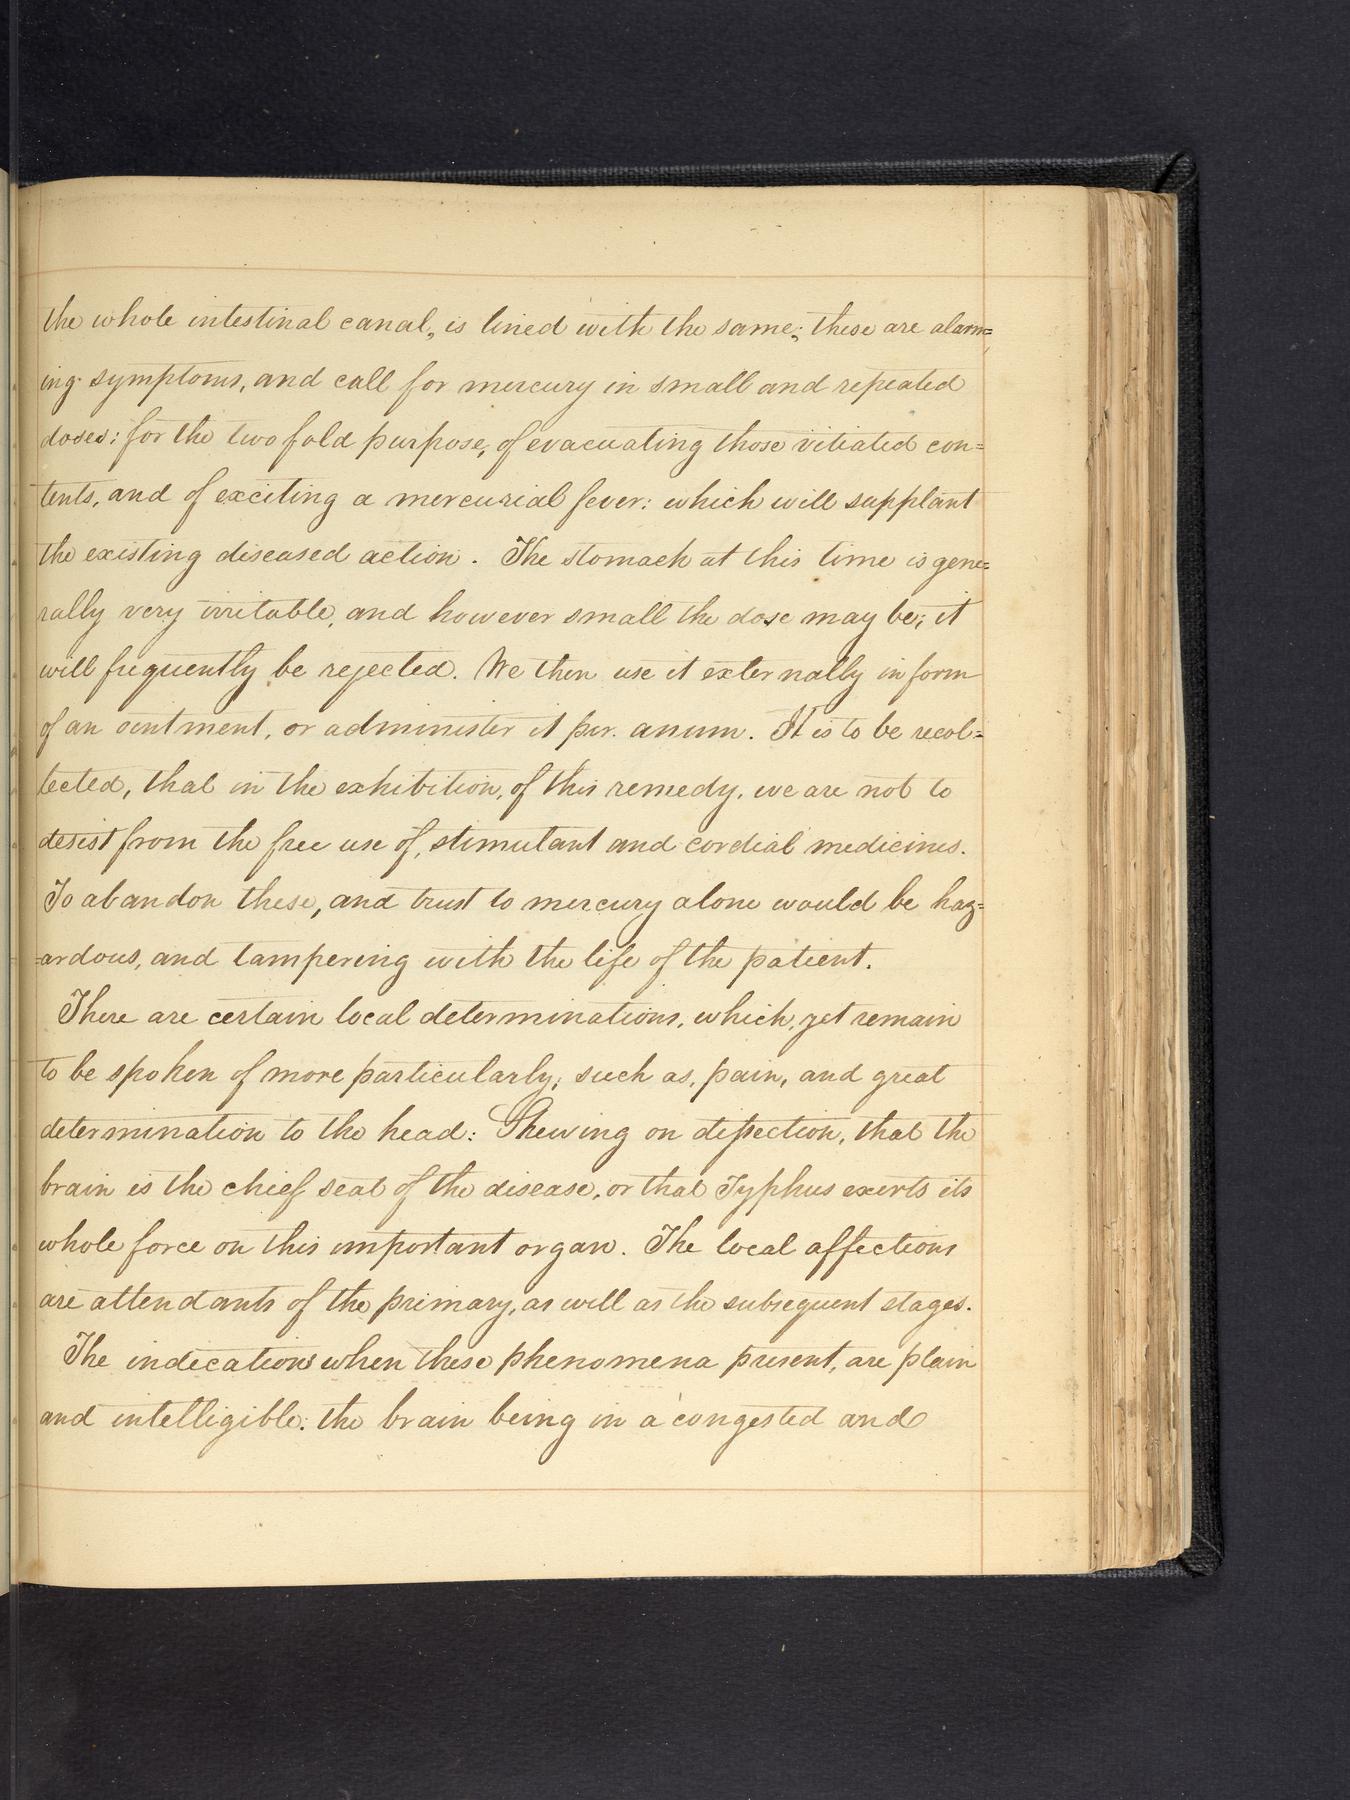 the whole intestinal canal, is lined with the same; these are alarm=
ing symptoms, and call for mercury in small and repeated
doses: for the two fold purpose, of evacuating those vitiated con=
tents, and of exciting a mercurial fever: which will supplant
the existing diseased action. The stomach at this time is gene=
rally very irritable, and however small the dose may be; it
will frequently be rejected. We then use it externally in form
of an ointment, or administer it per. anum. It is to be recol=
lected, that in the exhibition, of this remedy, we are not to
desist from the free use of, stimulant and cordial medicines.
To abandon these, and trust to mercury alone would be haz=
=ardous, and tampering with the life of the patient.
There are certain local determinations, which, yet remain
to be spoken of more particularly; such as, pain, and great
determination to the head: Shewing on dissection, that the
brain is the chief seat of the disease, or that Typhus exerts its
whole force on this important organ. The local affections
are attendants of the primary, as well as the subsequent stages.
The indications when these phenomena present, are plain
and intelligible: the brain being in a congested and